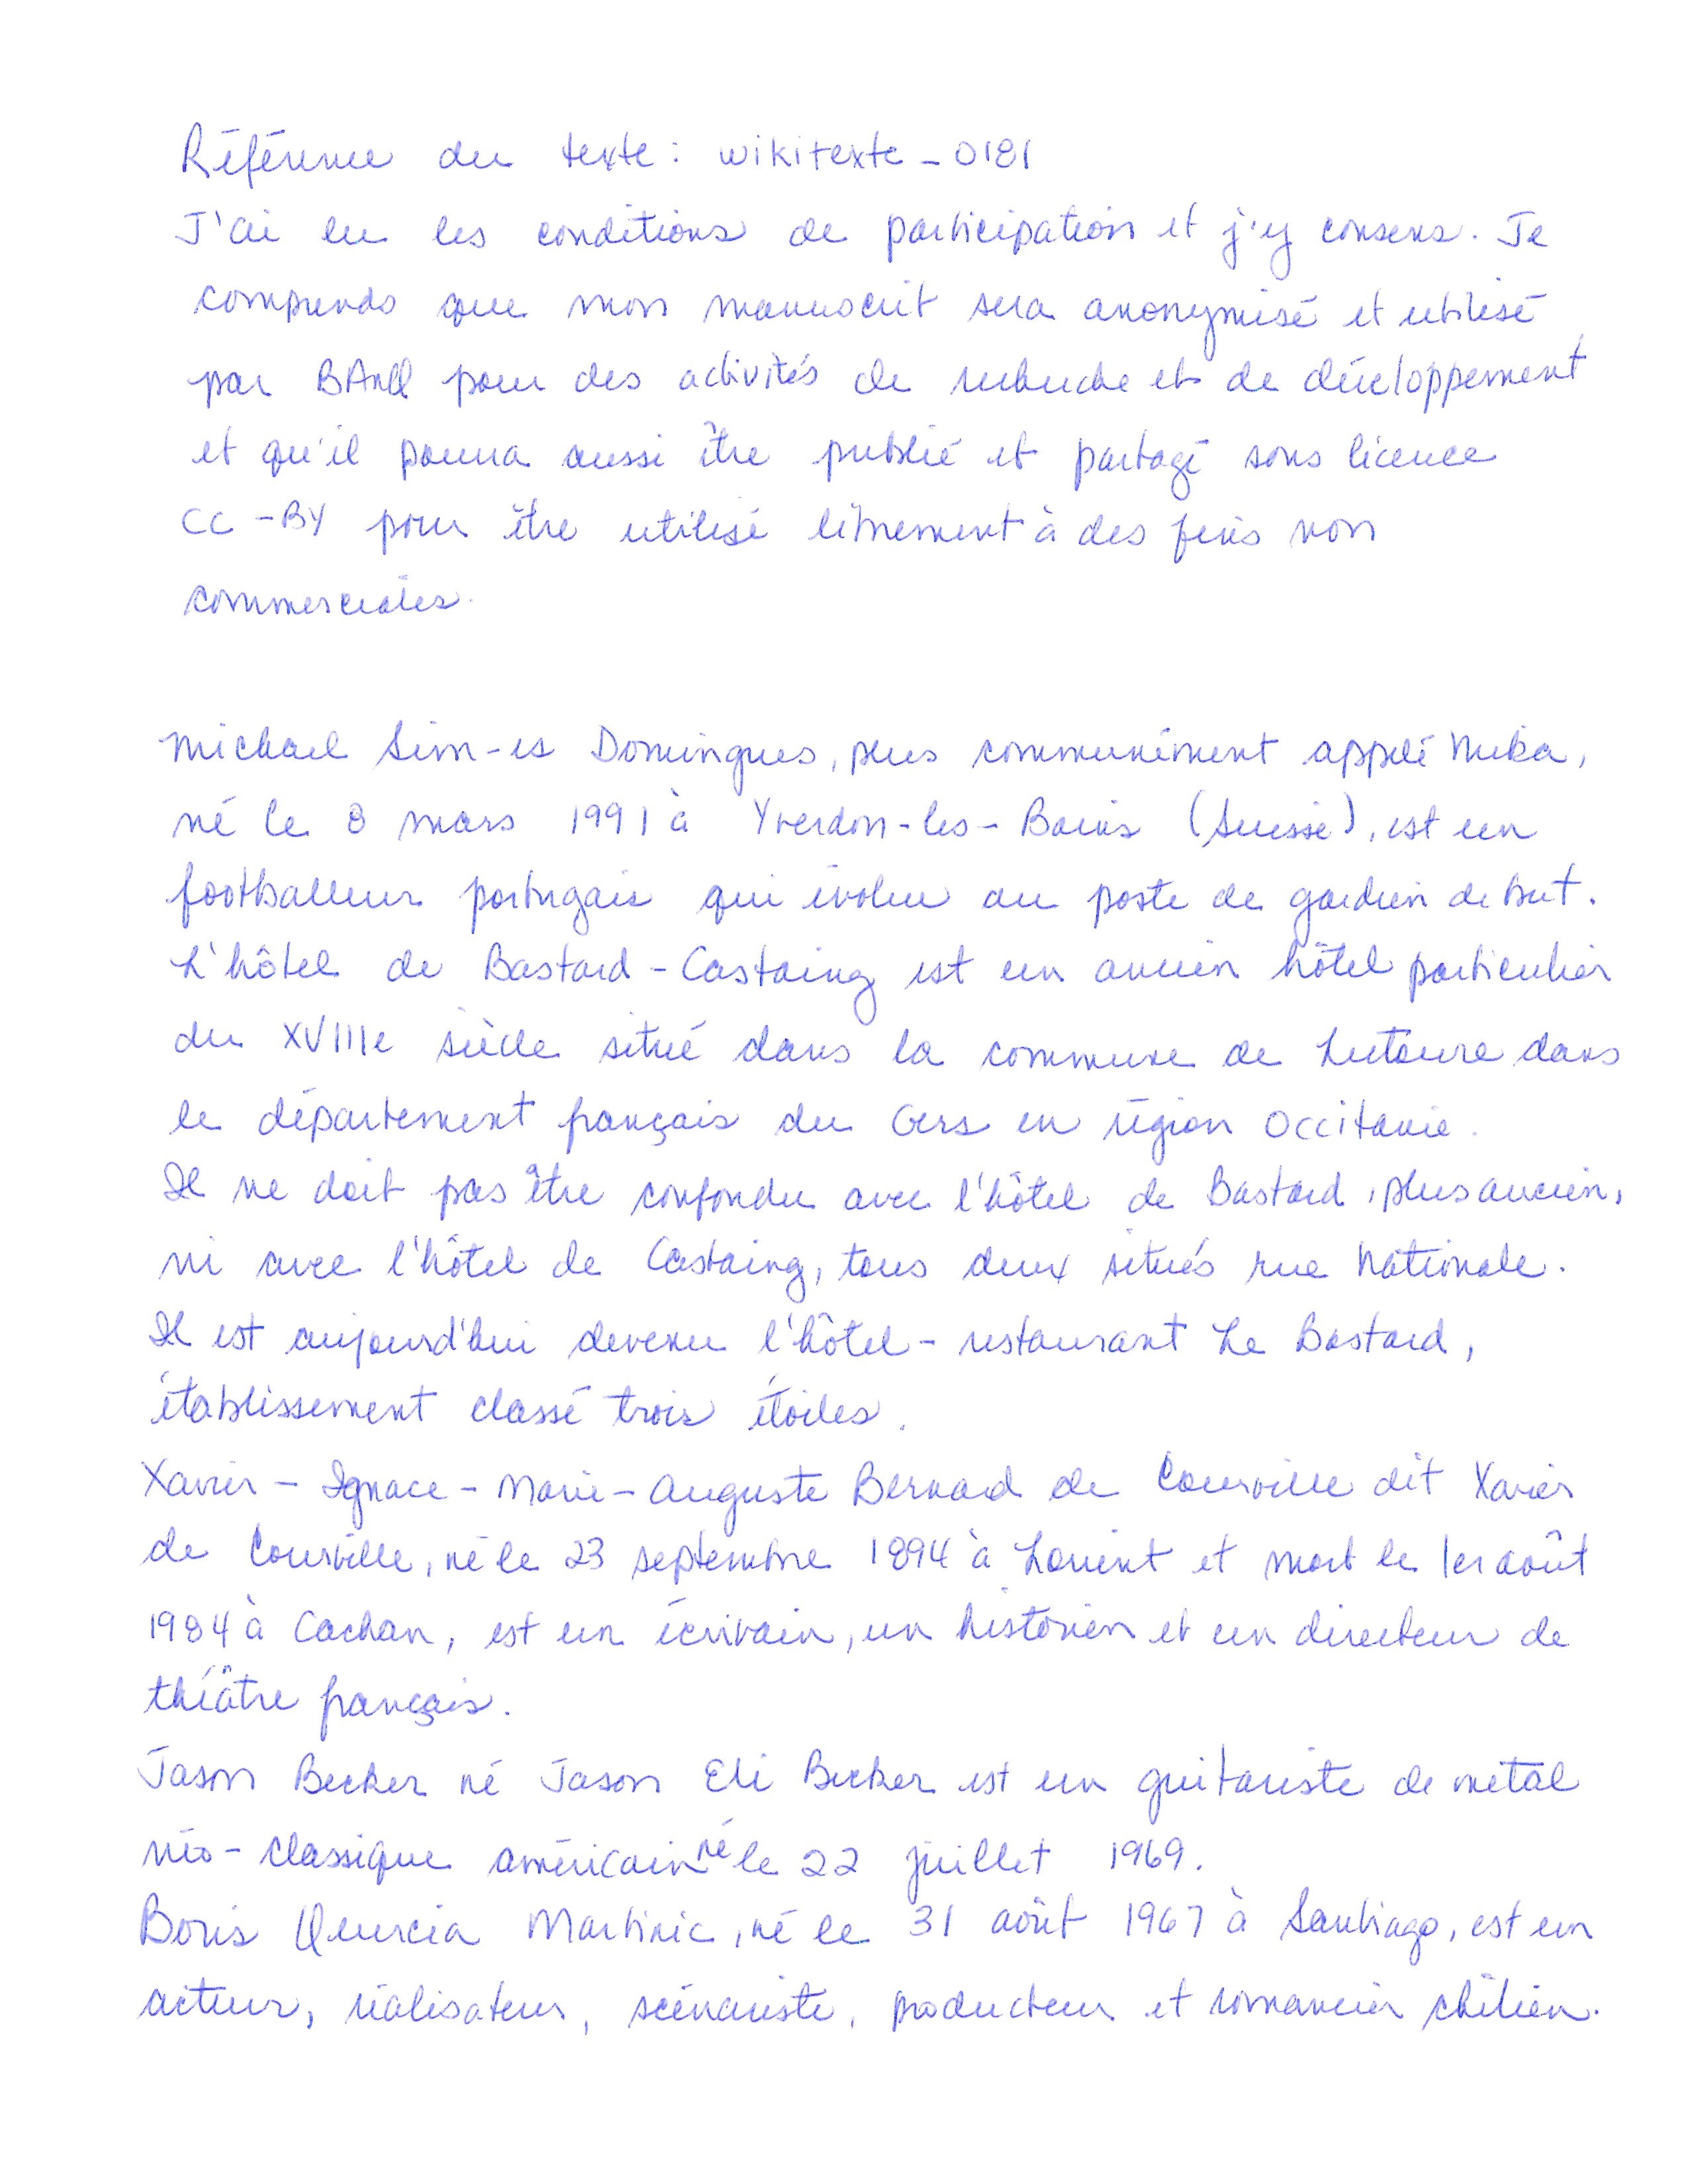 Référence du texte : wikitexte_0181
J'ai lu les conditions de participation et j'y consens. Je
comprends que mon manuscrit sera anonymisé et utilisé
par BAnQ pour des activités de recherche et de développement
et qu'il pourra aussi être publié et partagé sous licence
CC-BY pour être utilisé librement à des fins non
commerciales.
Michael Sim-es Domingues, plus communément appelé Mika,
né le 8 mars 1991 à Yverdon-les-Bains (Suisse), est un
footballeur portugais qui évolue au poste de gardien de but.
L'hôtel de Bastard-Castaing est un ancien hôtel particulier
du XVIIIe siècle situé dans la commune de Lectoure dans
le département français du Gers en région Occitanie.
Il ne doit pas être confondu avec l'hôtel de Bastard, plus ancien,
ni avec l'hôtel de Castaing, tous deux situés rue Nationale.
Il est aujourd'hui devenu l'hôtel-restaurant Le Bastard,
établissement classé trois étoiles.
Xavier-Ignace-Marie-Auguste Bernard de Courville dit Xavier
de Courville, né le 23 septembre 1894 à Lorient et mort le 1er août
1984 à Cachan, est un écrivain, un historien et un directeur de
théâtre français.
Jason Becker né Jason Eli Becker est un guitariste de metal
néo-classique américain né le 22 juillet 1969.
Boris Quercia Martinic, né le 31 août 1967 à Santiago, est un
acteur, réalisateur, scénariste, producteur et romancier chilien.